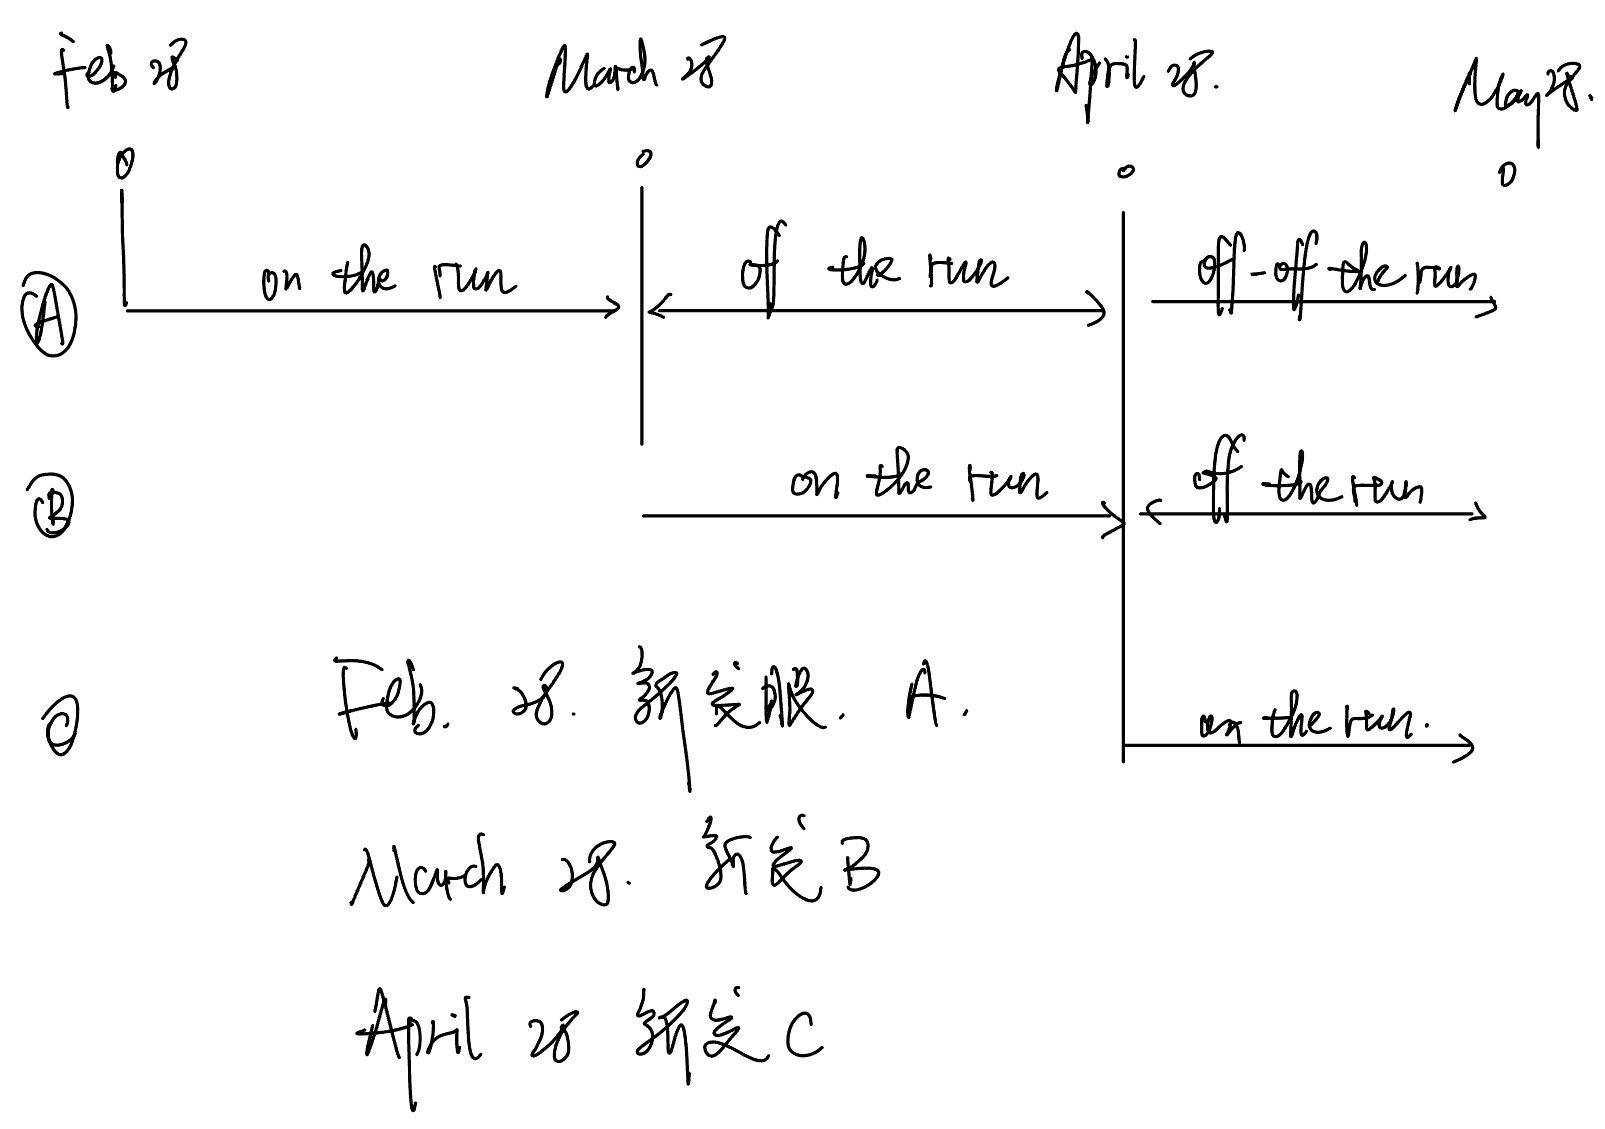 Feb 28 March 28 April 28. May 28.
Ⓐ on the run off the run off-off the run
Ⓑ on the run off the run
Ⓒ on the run.
Feb. 28. 新发股. A.
March 28. 新发 B
April 28 新发 C